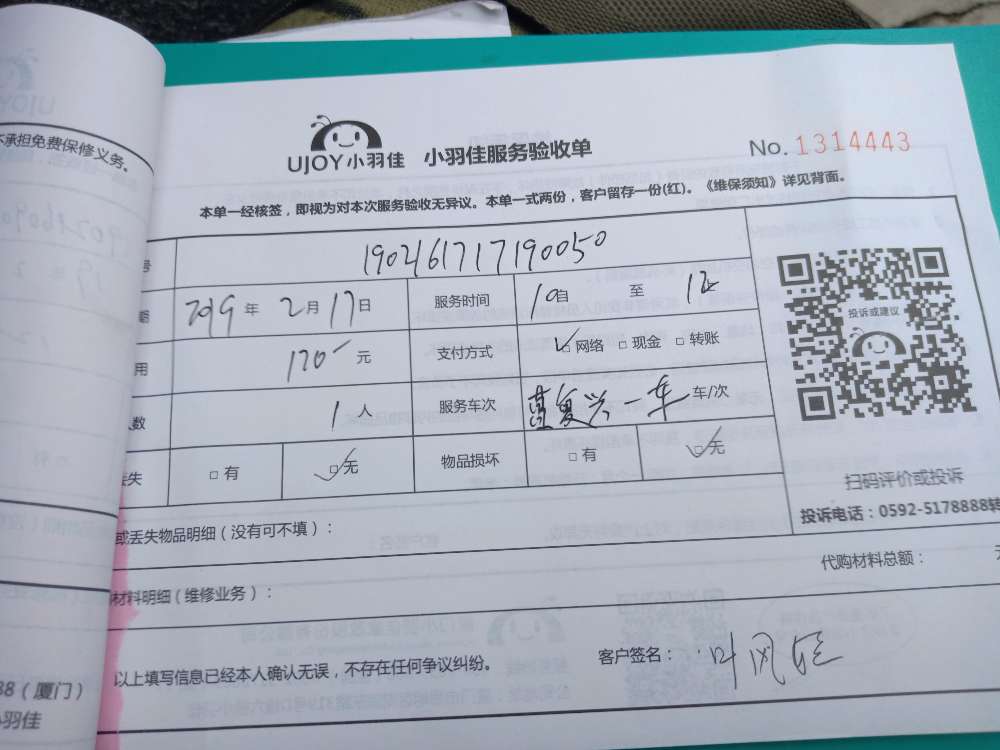 UJOY小羽佳 小羽佳服务验收单 No. 1314443
本单一经核签，即视为对本次服务验收无异议。本单一式两份，客户留存一份(红)。《维保须知》详见背面。
不承担免费保修义务。
号 1902161717190050
2019年2月17日 服务时间 10自 至 12止
用 120元 支付方式 ☑网络 □现金 □转账
人数 1人 服务车次 一车 车/次
丢失 □有 ☑无 物品损坏 □有 ☑无
投诉或建议
扫码评价或投诉
投诉电话：0592-5178888转
或丢失物品明细（没有可不填）：
材料明细（维修业务）： 代购材料总额：
以上填写信息已经本人确认无误，不存在任何争议纠纷。 客户签名：叶风
88（厦门）
小羽佳